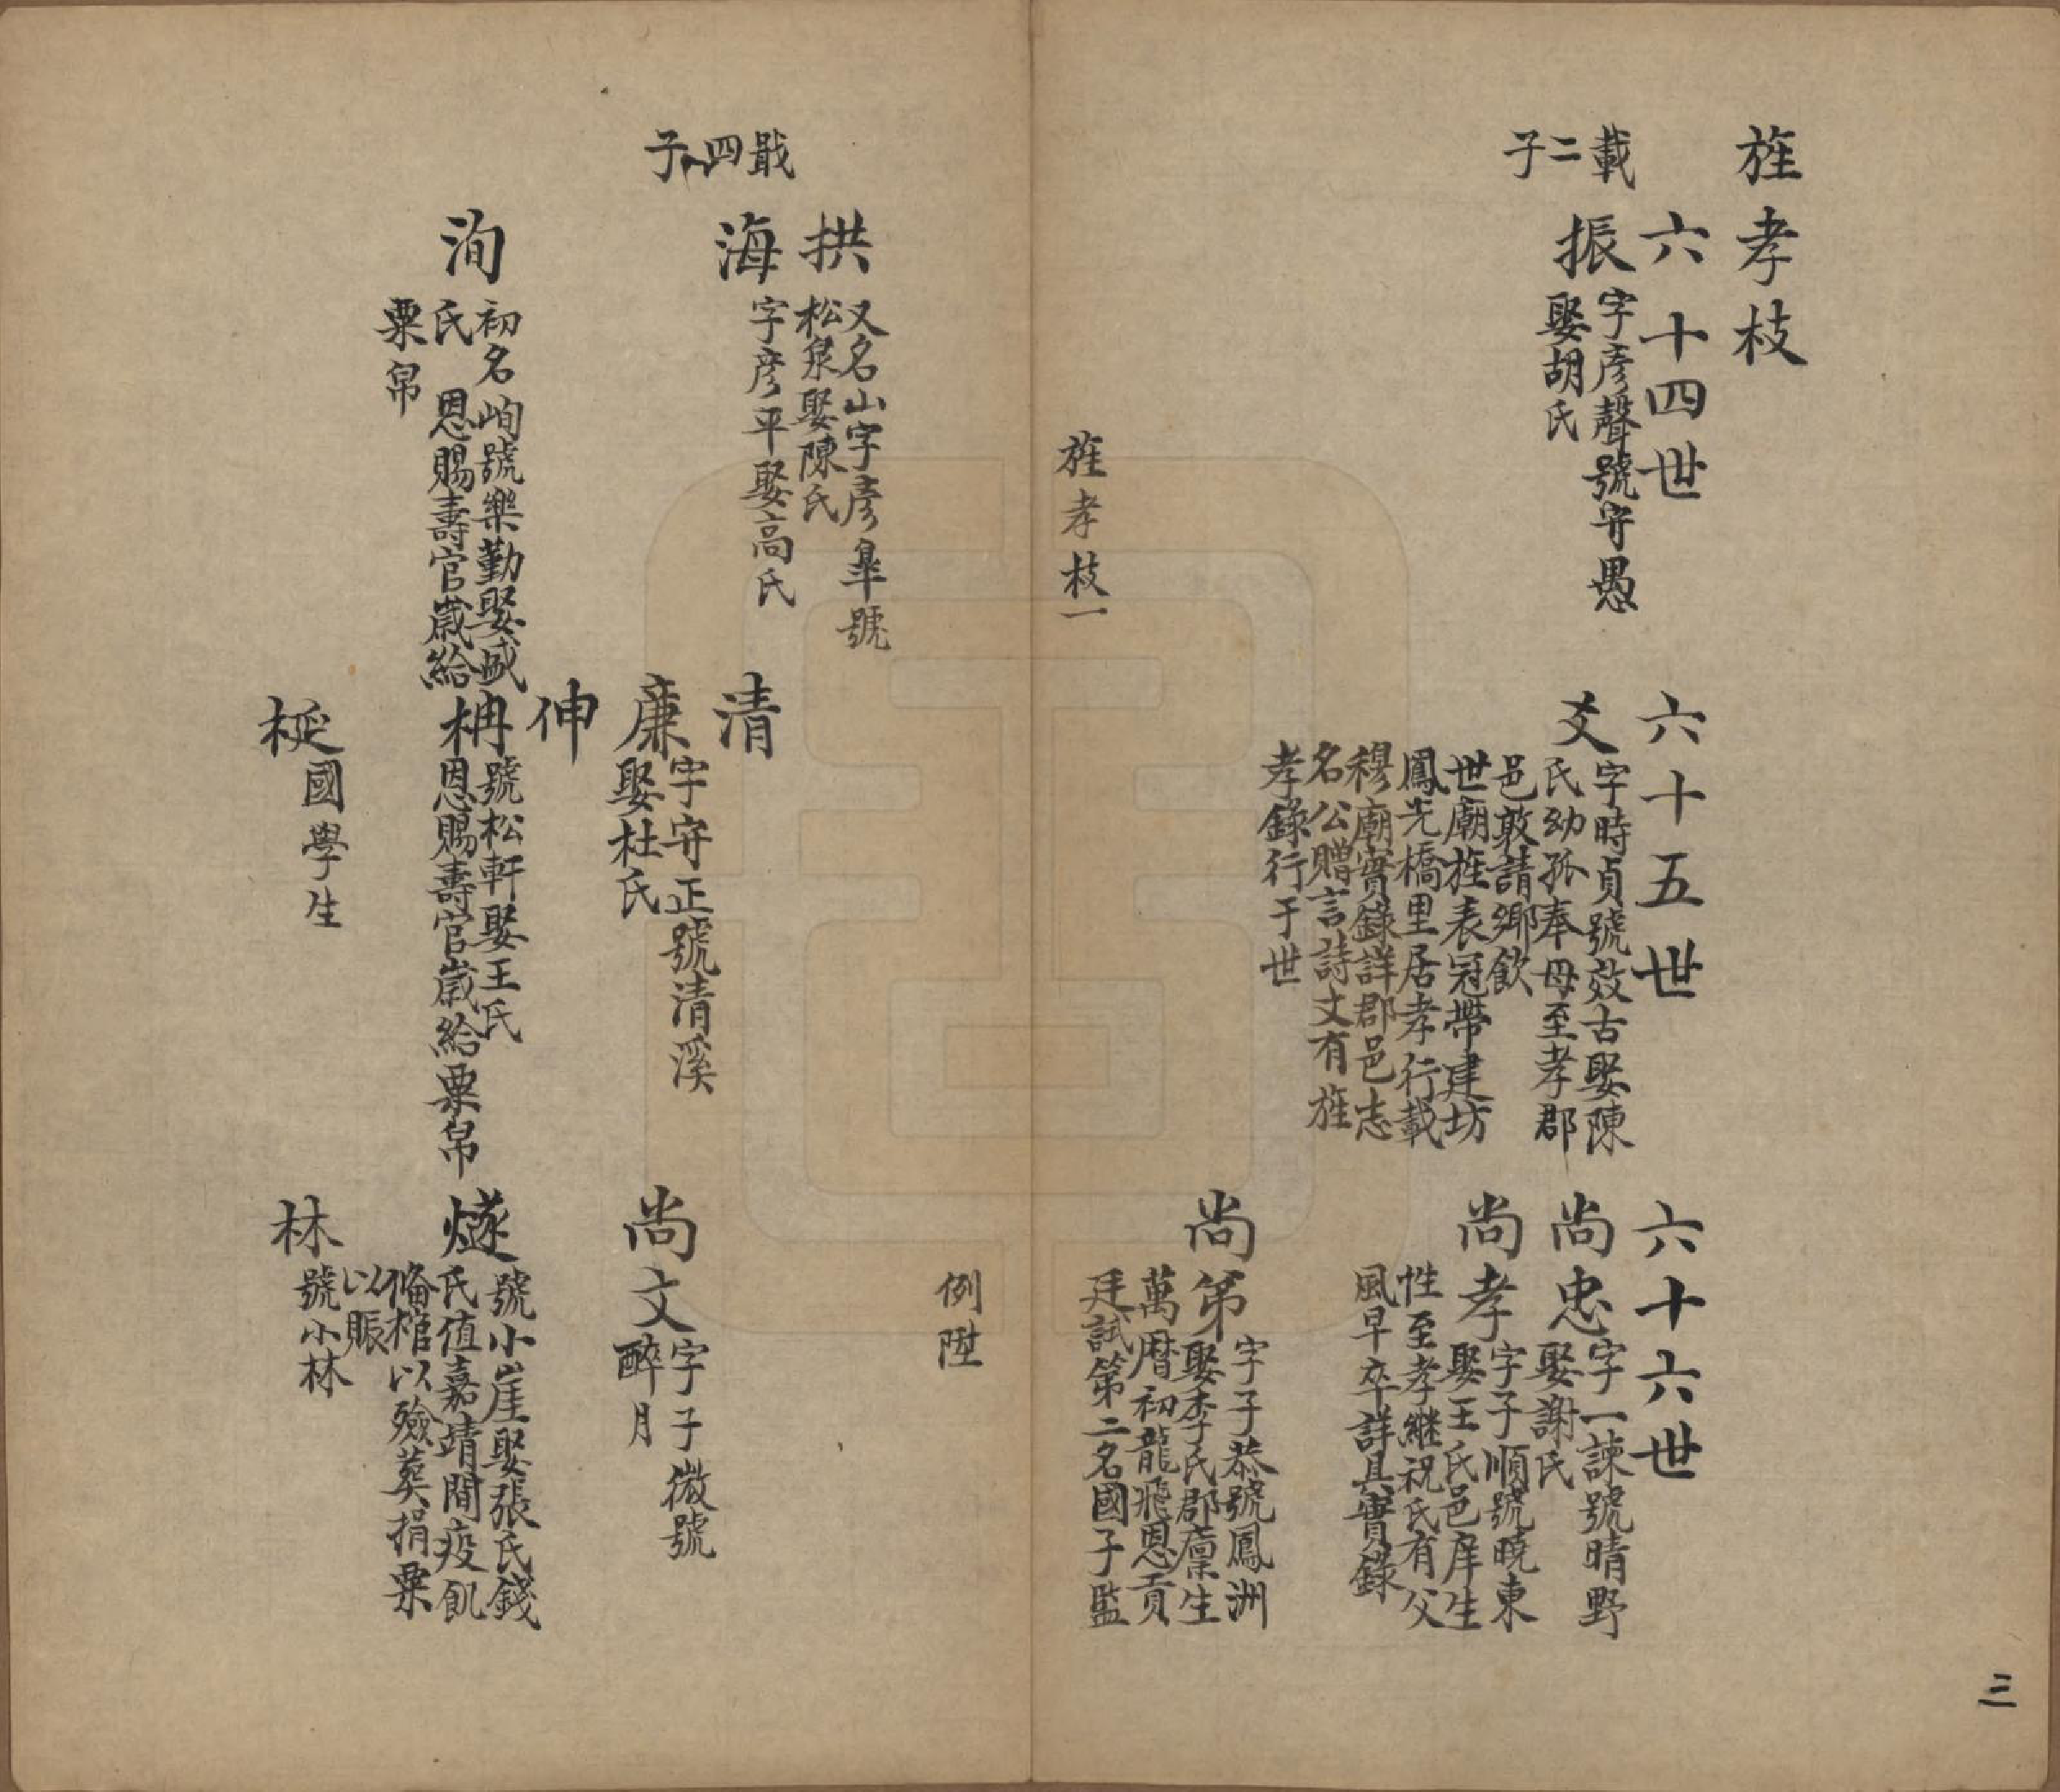 旌孝枝
六十四世
載二子
振
字彥聲號守愚
娶胡氏
六十五世
爻
字時貞號效古娶陳
氏幼孤奉母至孝郡
邑敦請鄉飲
世廟旌表冠帶建坊
鳳先橋里居孝行載
穆廟實錄詳郡邑志
名公贈言詩文有旌
孝錄行于世
六十六世
尚忠
字一諫號晴野
娶謝氏
尚孝
字子順號曉東
娶王氏邑庠生
性至孝繼祝氏有父
風早卒詳具實錄
尚第
字子恭號鳳洲
娶李氏郡廩生
萬曆初龍飛恩貢
廷試第二名國子監
旌孝枝一
例陞
戢四子
拱
又名山字彥皐號
松泉娶陳氏
海
字彥平娶高氏
清
廉
字守正號清溪
娶杜氏
尚文
字子微號
醉月
伸
洵
初名峋號樂勤娶戚
氏 恩賜壽官歲給
粟帛
柟
號松軒娶王氏
恩賜壽官歲給粟帛
燧
號小崖娶張氏錢
氏值嘉靖間疫飢
俻棺以殮葬捐粟
以賑
梴
國學生
林
號小林
三